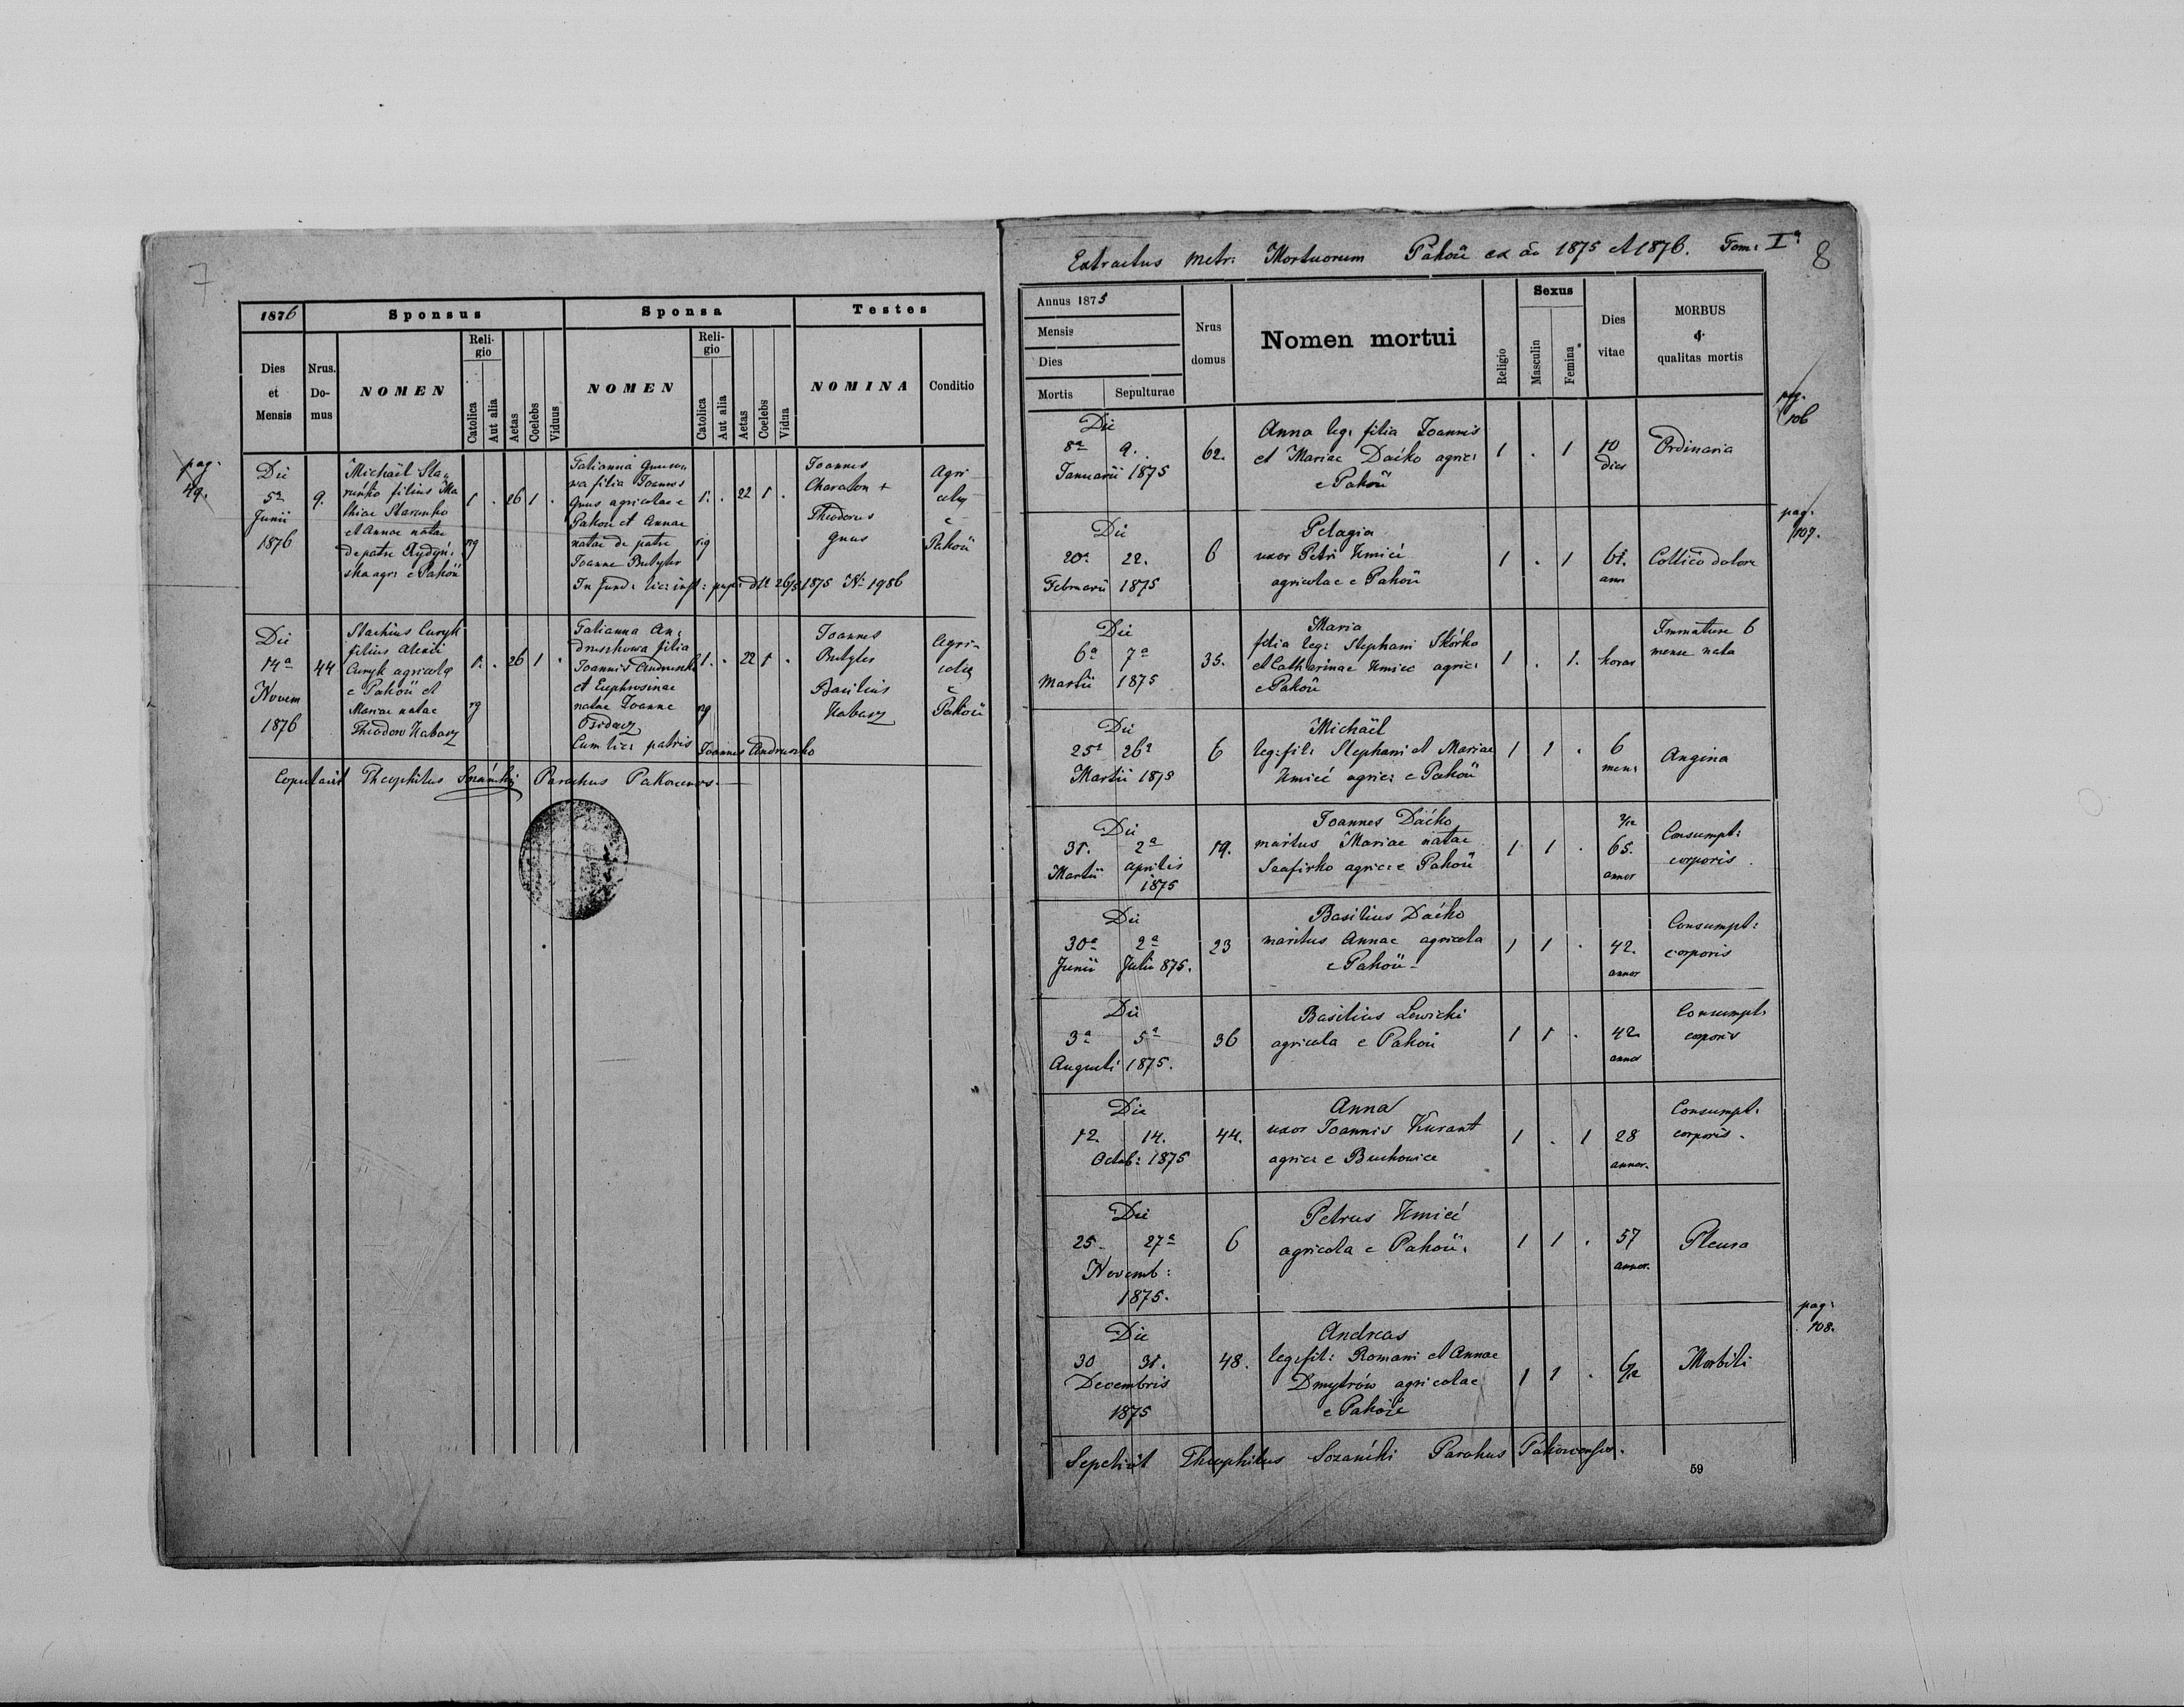 7
1876
Sponsus
Sponsa
Testes
Dies et Mensis
Nrus. Domus
NOMEN
Religio
Catolica
Aut alia
Aetas
Coelebs
Viduus
NOMEN
Religio
Catolica
Aut alia
Aetas
Coelebs
Vidua
NOMINA
Conditio
pag. 49.
Die
5ª
Junii
1876
9.
Michaël Sta
ranko filius Ma
thiae Staranko
et Annae natae
de patre
ska agr: e Pakoü
rg
1 . 26 1 .
Tatianna
wa filia Joannis
Gnus agricolae e
Pakou et Annae
natae de patre
Joanne Butyter
rg
1. . 22 1 .
Joannes
Charaton +
Theodorus
Gnus
Agri
colę
e
Pakoü
1875 Nº 1986
Die
14ª
Novem
1876
44
Stachius Curyk
filius Alexii
Curyk agricolę
e Pakoü et
Mariae natae
Theodoro Kabarz
rg
1. . 26 1 .
Tatianna An:
druszkowa filia
Joannis Andruszko
et Euphrosinae
natae Joanne
Cum lic: patris Joannes Andruszko
rg
1. . 22 1 .
Joannes
Butyter
Basilius
Kabarz
Agri-
colę
e
Pakoü
Copulavit Theophilus Sozański Parochus Pakovens.
Extractus metr: Mortuorum Pakoü ex aō 1875 et 1876. Tom: Iª
8
Annus 1875
Mensis
Dies
Mortis
Sepulturae
Nrus domus
Nomen mortui
Religio
Sexus
Masculin
Femina
Dies vitae
MORBUS
&
qualitas mortis
pag. 106
Die
8ª 9.
Januarii 1875
62.
Anna leg: filia Joannis
et Mariae Daćko agric:
e Pakoü
1 . 1
10
dies
Ordinaria
pag. 107.
Die
20ª 22.
Februarii 1875
6
Pelagia
uxor Petri Kmieć
agricolae e Pakoü
1 . 1
61.
ann
Collico dolore
Die
6ª 7ª
Martii 1875
35.
Maria
filia leg: Stephani Skórko
et Catharinae Kmieć agric:
e Pakoü
1 . 1.
horas
Immature 6
mense nata
Die
25ª 26ª
Martii 1875
6
Michaël
leg: fil: Stephani et Mariae
Kmieć agric: e Pakoü
1 1 .
6
mens
Angina
Die
31. 2ª
Martii Aprilis
1875
19.
Joannes Daćko
maritus Mariae natae
Szafirko agric: e Pakoü
1 1 .
65.
annor
Consumpt:
corporis.
Die
30ª 2ª
Junii Julii 875.
23
Basilius Daćko
maritus Annae agricola
e Pakoü-
1 1 .
42.
annor
Consumpt:
corporis
Die
3ª 5ª
Augusti 1875.
36
Basilius Lewicki
agricola e Pakoü
1 1 .
42
annor
Consumpt:
corporis
Die
12. 14.
Octob: 1875
44.
Anna
uxor Joannis Kurant
agric: e Buchowice
1 . 1
28
annor.
Consumpt:
corporis.
Die
25. 27ª
Novemb:
1875.
6
Petrus Kmieć
agricola e Pakoü.
1 1 .
57
annor.
Pleura
pag: 108.
Die
30 31.
Decembris
1875
48.
Andreas
leg: fil: Romani et Annae
Dmytrów agricolae
e Pakoü
1 1 .
6/12
Morbili
Sepelivit Theophilus Sozański Parohus Pakovensis.
59